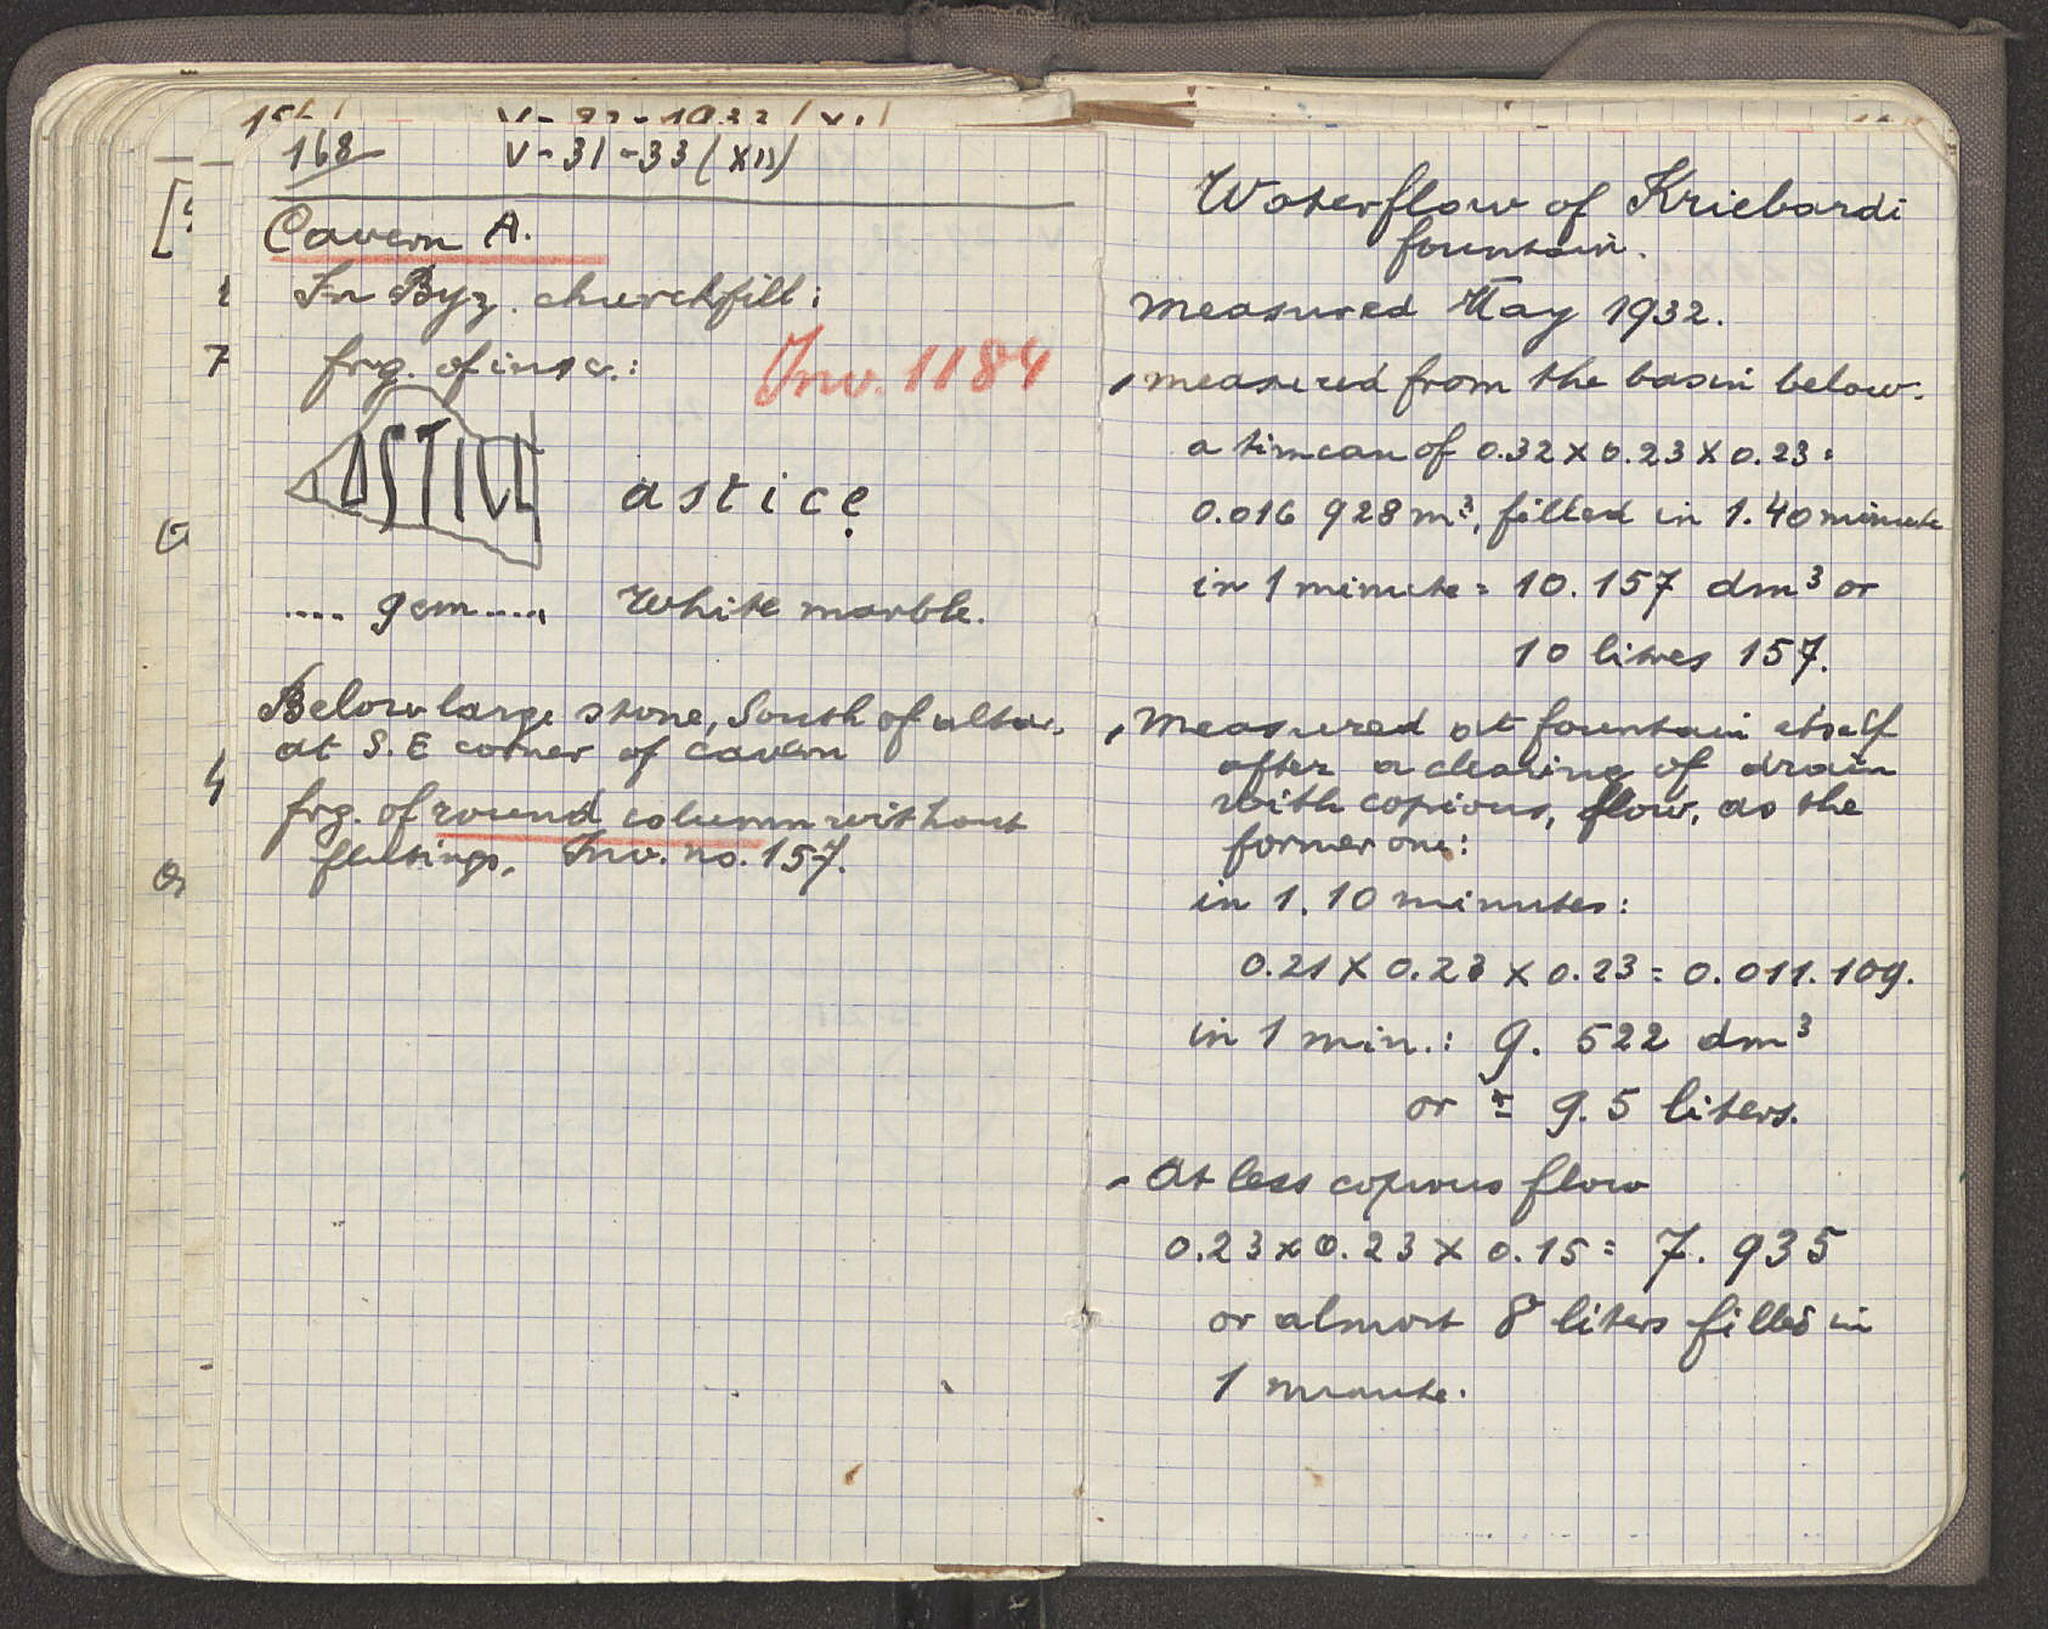 168 V-31-33 (XII)
Cavern A.
In Byz. churchfill:
frg. of inscr.: Inv. 1184
ASTICE
astice
.... 9 cm .... White marble.
Below large stone, South of altar,
at S.E corner of cavern
frg. of round column without
flutings, Inv. no. 157.
Waterflow of Kriebardi
fountain.
Measured May 1932.
, measured from the basin below.
a tin can of 0.32 x 0.23 x 0.23 =
0.016 928 m³, filled in 1.40 minute
in 1 minute = 10.157 dm³ or
10 litres 157.
, Measured at fountain itself
after a clearing of drain
with copious, flow, as the
former one:
in 1.10 minutes:
0.21 x 0.23 x 0.23 = 0.011.109.
in 1 min.: 9. 522 dm³
or ± 9.5 liters.
- At less copious flow
0.23 x 0.23 x 0.15 = 7. 935
or almost 8 liters filled in
1 minute.